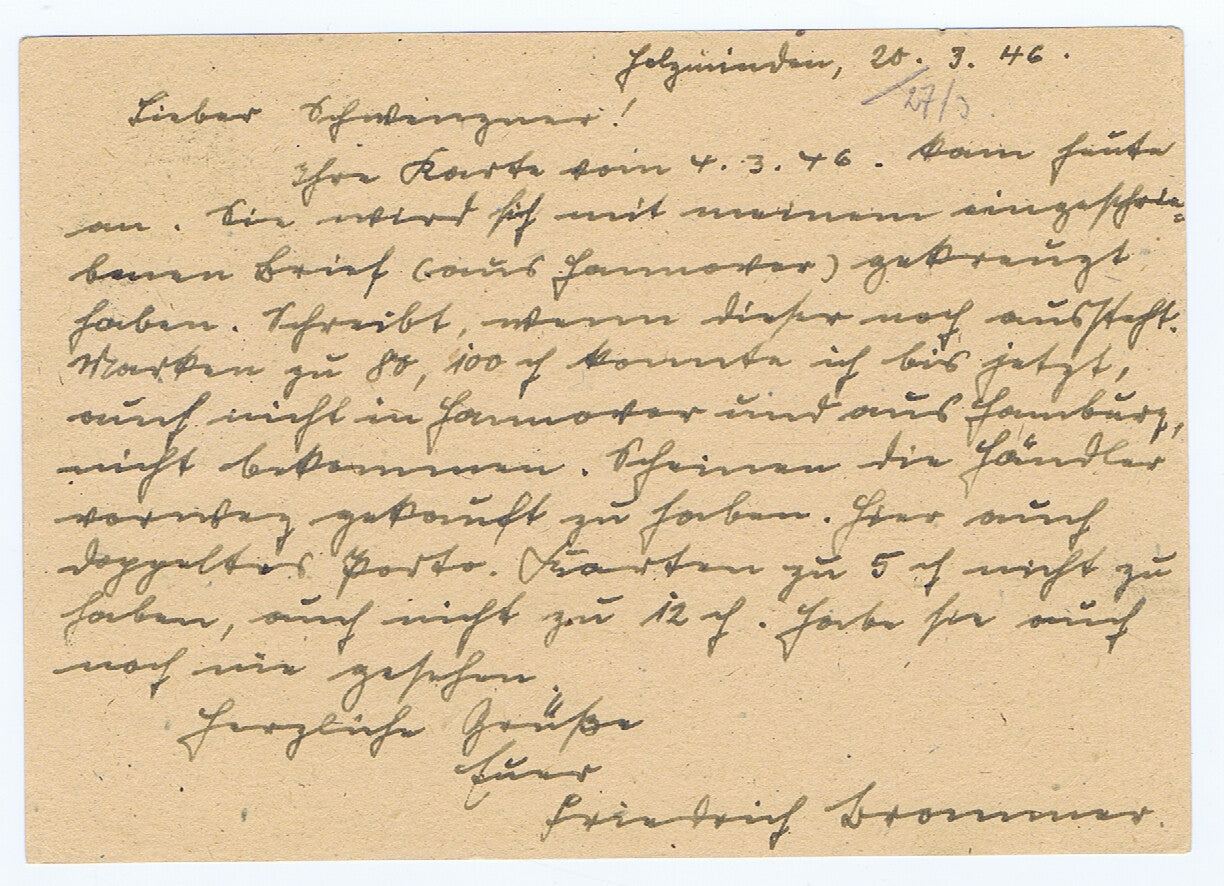 Holzminden, 20. 3. 46.
27/3
Lieber Schwenzner!
Ihre Karte vom 4. 3. 46. kam heute
an. Sie wird sich mit meinem eingeschrie-
benen Brief (aus Hannover) gekreuzt
haben. Schreibt, wenn dieser noch aussteht.
Marken zu 80, 100 ₰ konnte ich bis jetzt,
auch nicht in Hannover und aus Hamburg,
nicht bekommen. Scheinen die Händler
vorweg gekauft zu haben. Hier auch
doppeltes Porto. Karten zu 5 ₰ nicht zu
haben, auch nicht zu 12 ₰. Habe sie auch
noch nie gesehen.
Herzliche Grüße
Euer
Friedrich Brommer.